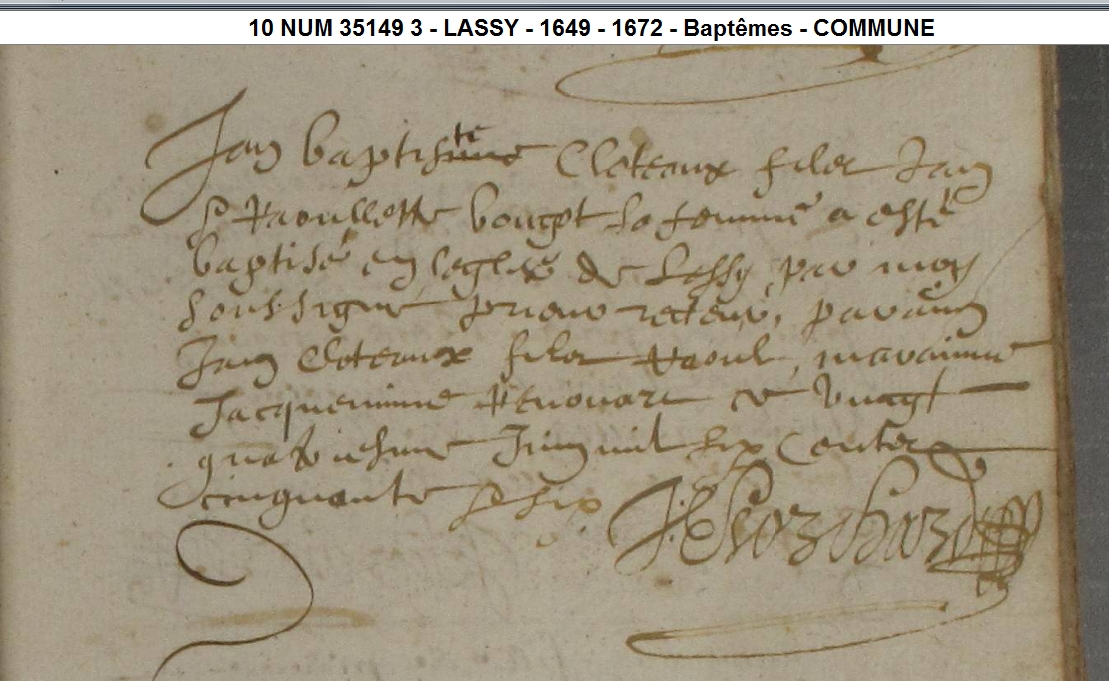 10 NUM 35149 3 - LASSY - 1649 - 1672 - Baptêmes - COMMUNE
Jan baptiste Cloteaux filz Jan
& Raoullette bougot sa femme a esté
baptisé en leglise de Lassy par moy
soubsigné prieur recteur, parain
Jan Cloteaux filz Raoul, maraine
Jacquemine Renouart ce vingt
quatriesme Juin mil six centz
cinquante & six